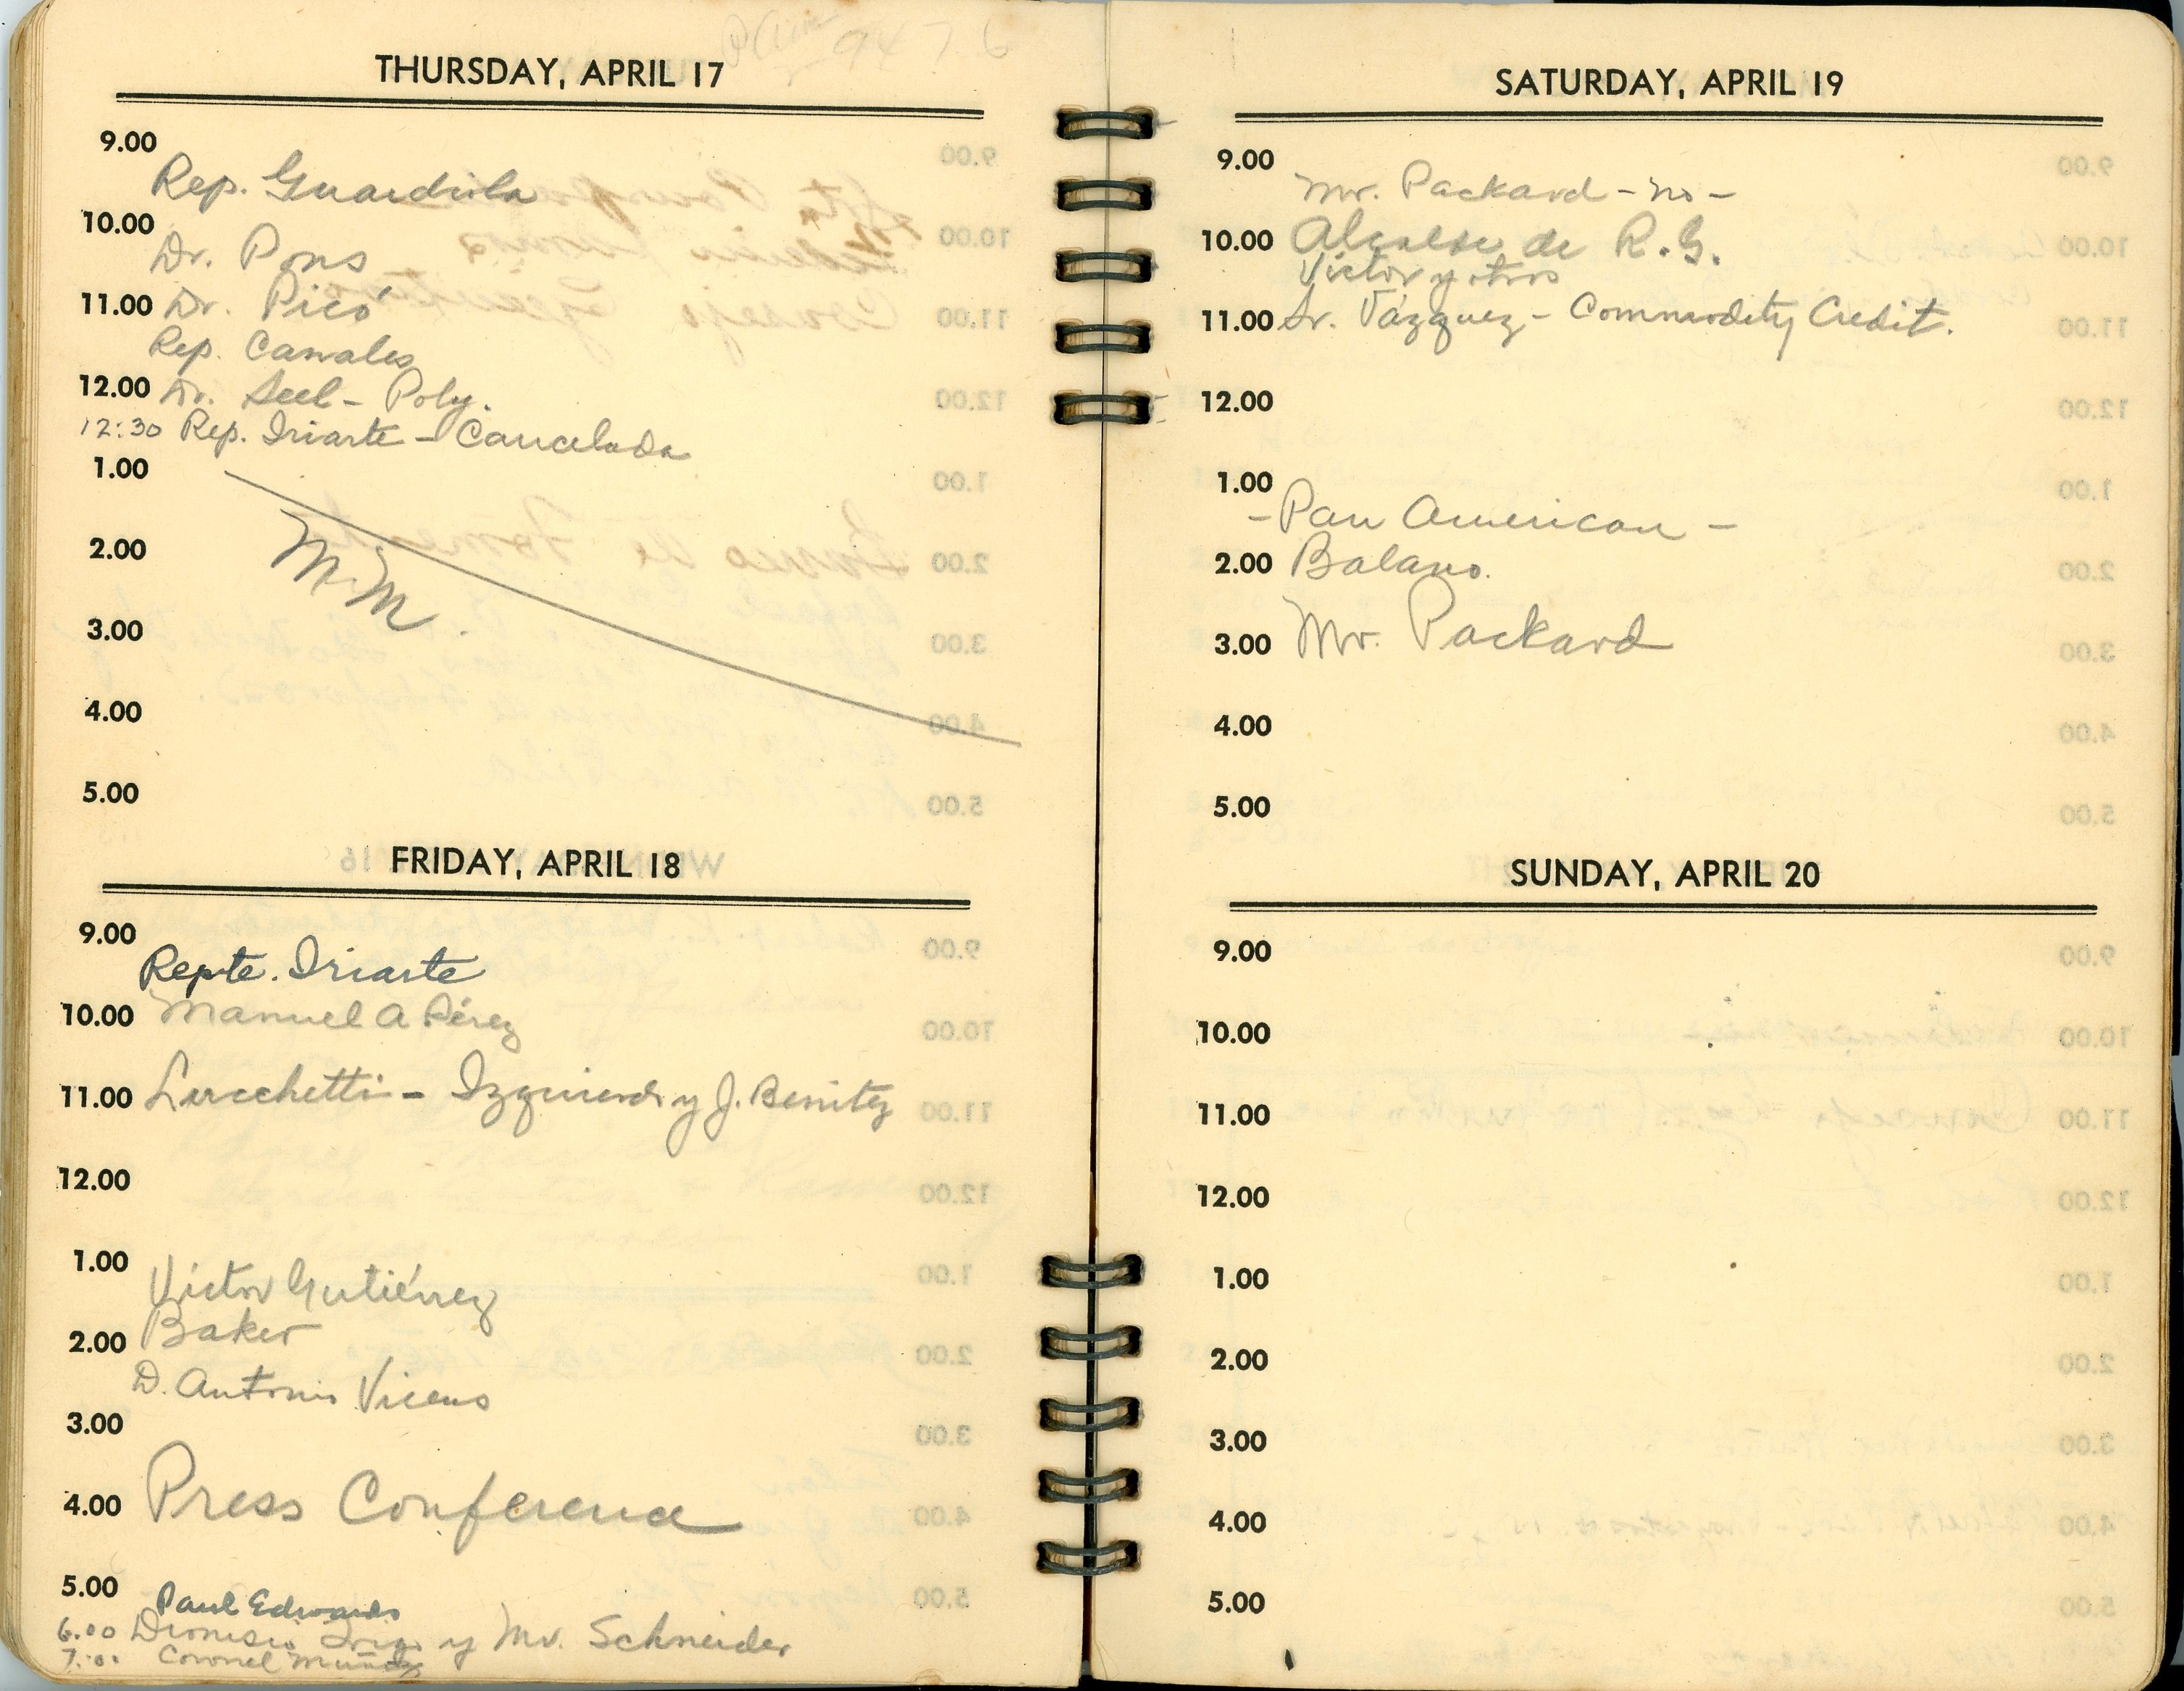 9476
THURSDAY, APRIL 17
9.00
Rep. Guardiola
10.00
Dr. Pons
11.00 Dr. Picó
Rep. Canales
12.00 Dr. Seel - Poly.
12:30 Rep. Iriarte - Cancelada
1.00
2.00 M.M.
3.00
4.00
5.00
FRIDAY, APRIL 18
9.00
Repte. Iriarte
10.00 Manuel A Pérez
11.00 Lucchetti - Izquierdo y J. Benitez
12.00
1.00
Victor Gutiérrez
2.00 Baker
D. Antonio Vicens
3.00
4.00 Press Conference
5.00 Paul Edwards
6.00 Dionisio Trigo y Mr. Schneider
7:00 Coronel Muñoz
SATURDAY, APRIL 19
9.00
Mr. Packard - no -
10.00 Alcalde de R.G.
Victor y otros
11.00 Sr. Vázquez - Commodity Credit.
12.00
1.00
- Pan American -
2.00 Balano.
3.00 Mr. Packard
4.00
5.00
SUNDAY, APRIL 20
9.00
10.00
11.00
12.00
1.00
2.00
3.00
4.00
5.00